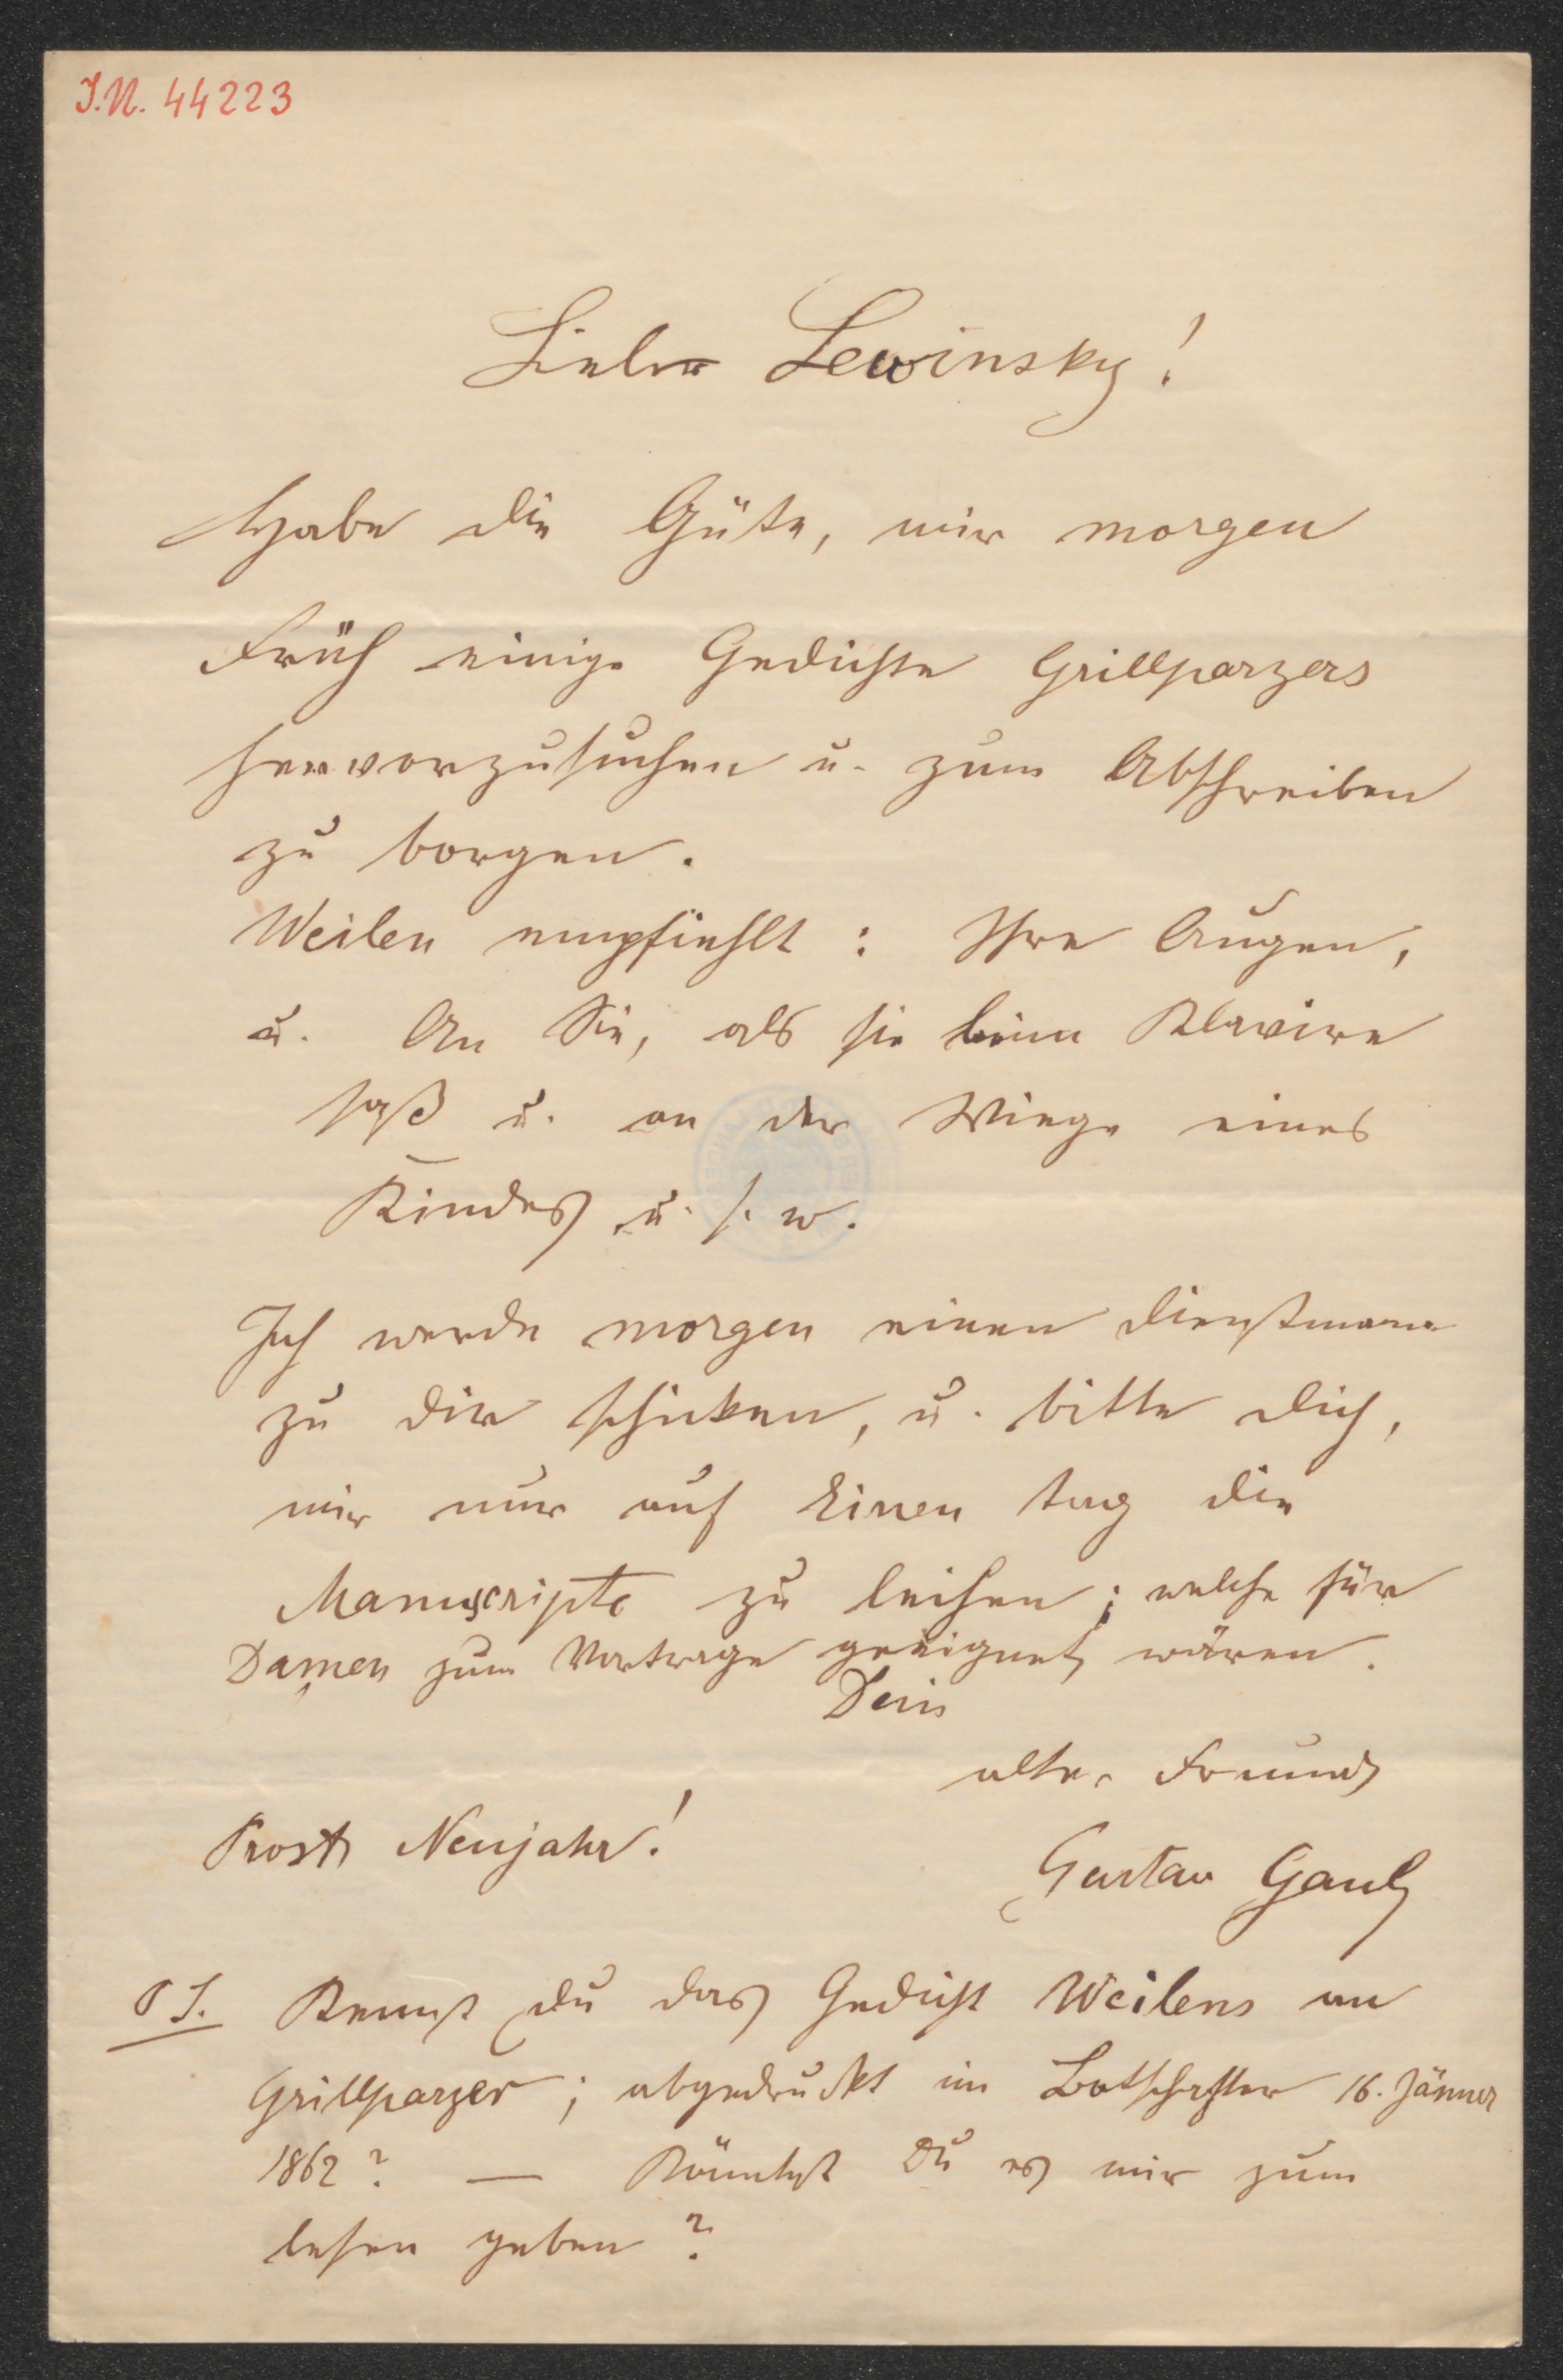 J.N. 44223
Lieber Lewinsky!
Habe die Güte, mir morgen
Früh einige Gedichte Grillparzers
hervorzusuchen u. zum Abschreiben
zu borgen.
Weilen empfiehlt: Ihre Augen,
u. An Sie, als sie beim Klavire
saß u. an der Wiege eines
Kindes u. s. w.
Ich werde morgen einen Dienstmann
zu dir schicken, u. bitte dich,
mir nur auf Einen Tag die
Manuscripte zu leihen; welche für
Damen zum Vortrage geeignet wären.
Dein
alter Freund
Prost Neujahr!
Gustav Gaul
PS. Kennst du das Gedicht Weilens an
Grillparzer; abgedruckt im Botschafter 16. Jänner
1862? — Könntest Du es mir zum
lesen geben?